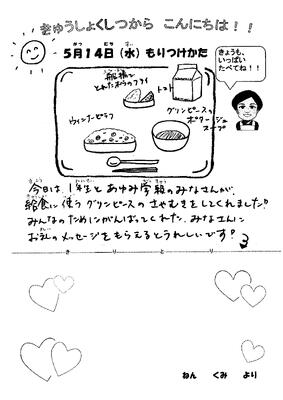 きゅうしょくしつから こんにちは！！
5月14日（水）もりつけかた
きょうも、
いっぱい
たべてね！！
船橋で
とれたホウのフライ
トマト
グリンピースの
ポタージュ
スープ
ウィンナーピラフ
今日は、1年生とあゆみ学級のみなさんが、
給食に使うグリンピースのさやむきをしてくれました！
みんなのためにがんばってくれた、みなさんに
お礼のメッセージをもらえるとうれしいです！
きりとり
ねん くみ より